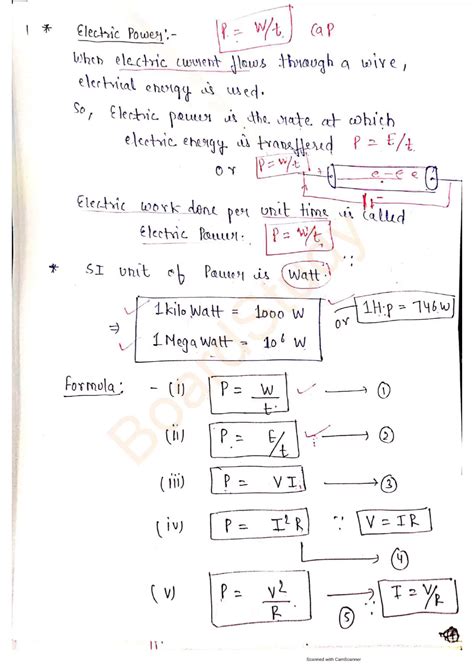 1 * Electric Power:- P = W/t. CaP
When electric current flows through a wire,
electrial energy is used.
So, Electric power is the rate at which
electric energy is transffered P = E/t
or P = W/t
e - e e
Electric work done per unit time is called
Electric Power. P = W/t.
* SI unit of Power is Watt. ∵
⇒ 1 kilo Watt = 1000 W or 1 H.p = 746 W
1 Mega Watt = 10⁶ W
Formula: - (i) P = W/t. → ①
(ii) P = E/t → ②
(iii) P = VI. → ③
(iv) P = I²R ∵ V = IR
→ ④
(v) P = V²/R. → ⑤ ∵ I = V/R
BoardStudy
Scanned with CamScanner